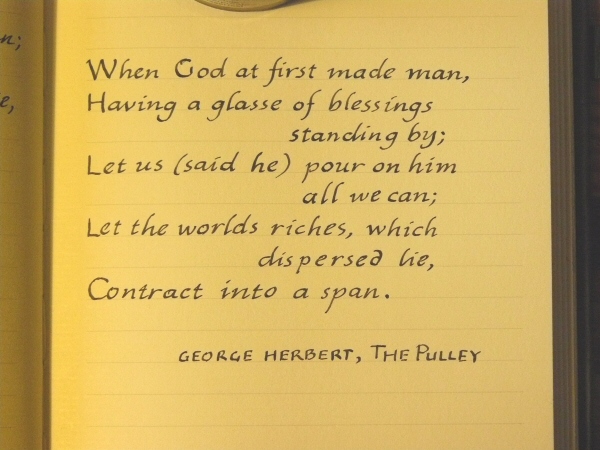 n;
e,
When God at first made man,
Having a glasse of blessings
standing by;
Let us (said he) pour on him
all we can;
Let the worlds riches, which
dispersed lie,
Contract into a span.
GEORGE HERBERT, THE PULLEY